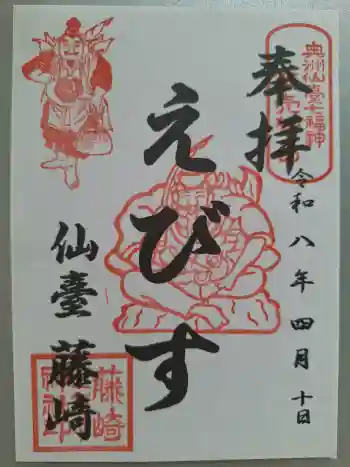 奉拝
奥州仙臺七福神
令和八年四月十日
えびす
仙臺 藤崎
藤崎